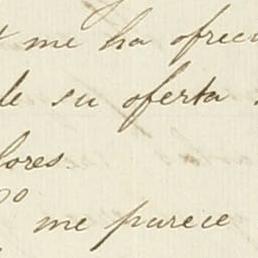 me ha ofreci
de su oferta
lores.
me parece